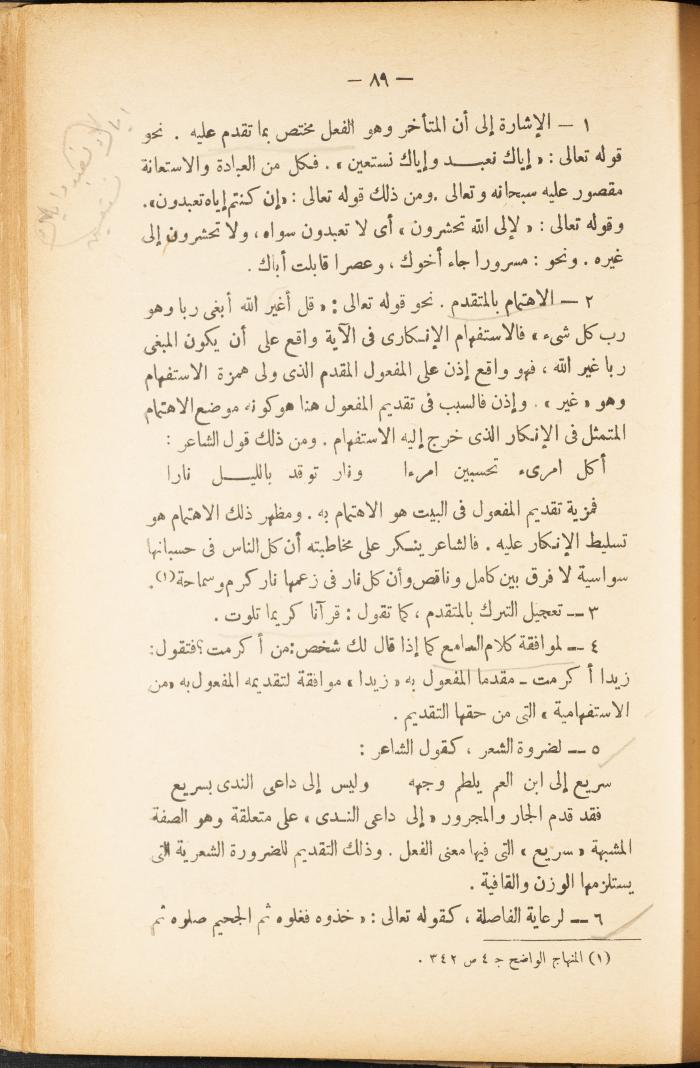 — ٨٩ —
١ — الإشارة إلى أن المتأخر وهو الفعل مختص بما تقدم عليه . نحو
قوله تعالى : « إياك نعبد وإياك نستعين » . فكل من العبادة والاستعانة
مقصور عليه سبحانه وتعالى . ومن ذلك قوله تعالى : « إن كنتم إياه تعبدون » .
وقوله تعالى : « لإلى الله تحشرون » أى لا تعبدون سواه ، ولا تحشرون إلى
غيره . ونحو : مسرورا جاء أخوك ، وعصرا قابلت أباك .
٢ — الاهتمام بالمتقدم . نحو قوله تعالى : « قل أغير الله أبغى ربا وهو
رب كل شىء » فالاستفهام الإنكارى فى الآية واقع على أن يكون المبغى
ربا غير الله ، فهو واقع إذن على المفعول المقدم الذى ولى همزة الاستفهام
وهو « غير » . وإذن فالسبب فى تقديم المفعول هنا هو كونه موضع الاهتمام
المتمثل فى الإنكار الذى خرج إليه الاستفهام . ومن ذلك قول الشاعر :
أكل امرىء تحسبين امرءا ونار توقد بالليل نارا
فمزية تقديم المفعول فى البيت هو الاهتمام به . ومظهر ذلك الاهتمام هو
تسليط الإنكار عليه . فالشاعر ينكر على مخاطبته أن كل الناس فى حسبانها
سواسية لا فرق بين كامل وناقص وأن كل نار فى زعمها نار كرم وسماحة (١) .
٣ — تعجيل التبرك بالمتقدم ، كما تقول : قرآنا كريما تلوت .
٤ — لموافقة كلام السامع كما إذا قال لك شخص : من أكرمت ؟ فتقول :
زيدا أكرمت — مقدما المفعول به « زيدا » موافقة لتقديمه المفعول به « من
الاستفهامية » التى من حقها التقديم .
٥ — لضروة الشعر ، كقول الشاعر :
سريع إلى ابن العم يلطم وجهه وليس إلى داعى الندى بسريع
فقد قدم الجار والمجرور « إلى داعى الندى » على متعلقة وهو الصفة
المشبهة « سريع » التى فيها معنى الفعل . وذلك التقديم للضرورة الشعرية التى
يستلزمها الوزن والقافية .
٦ — لرعاية الفاصلة ، كقوله تعالى : « خذوه فغلوه ثم الجحيم صلوه ثم
(١) المنهاج الواضح جـ ٤ ص ٣٤٢ .